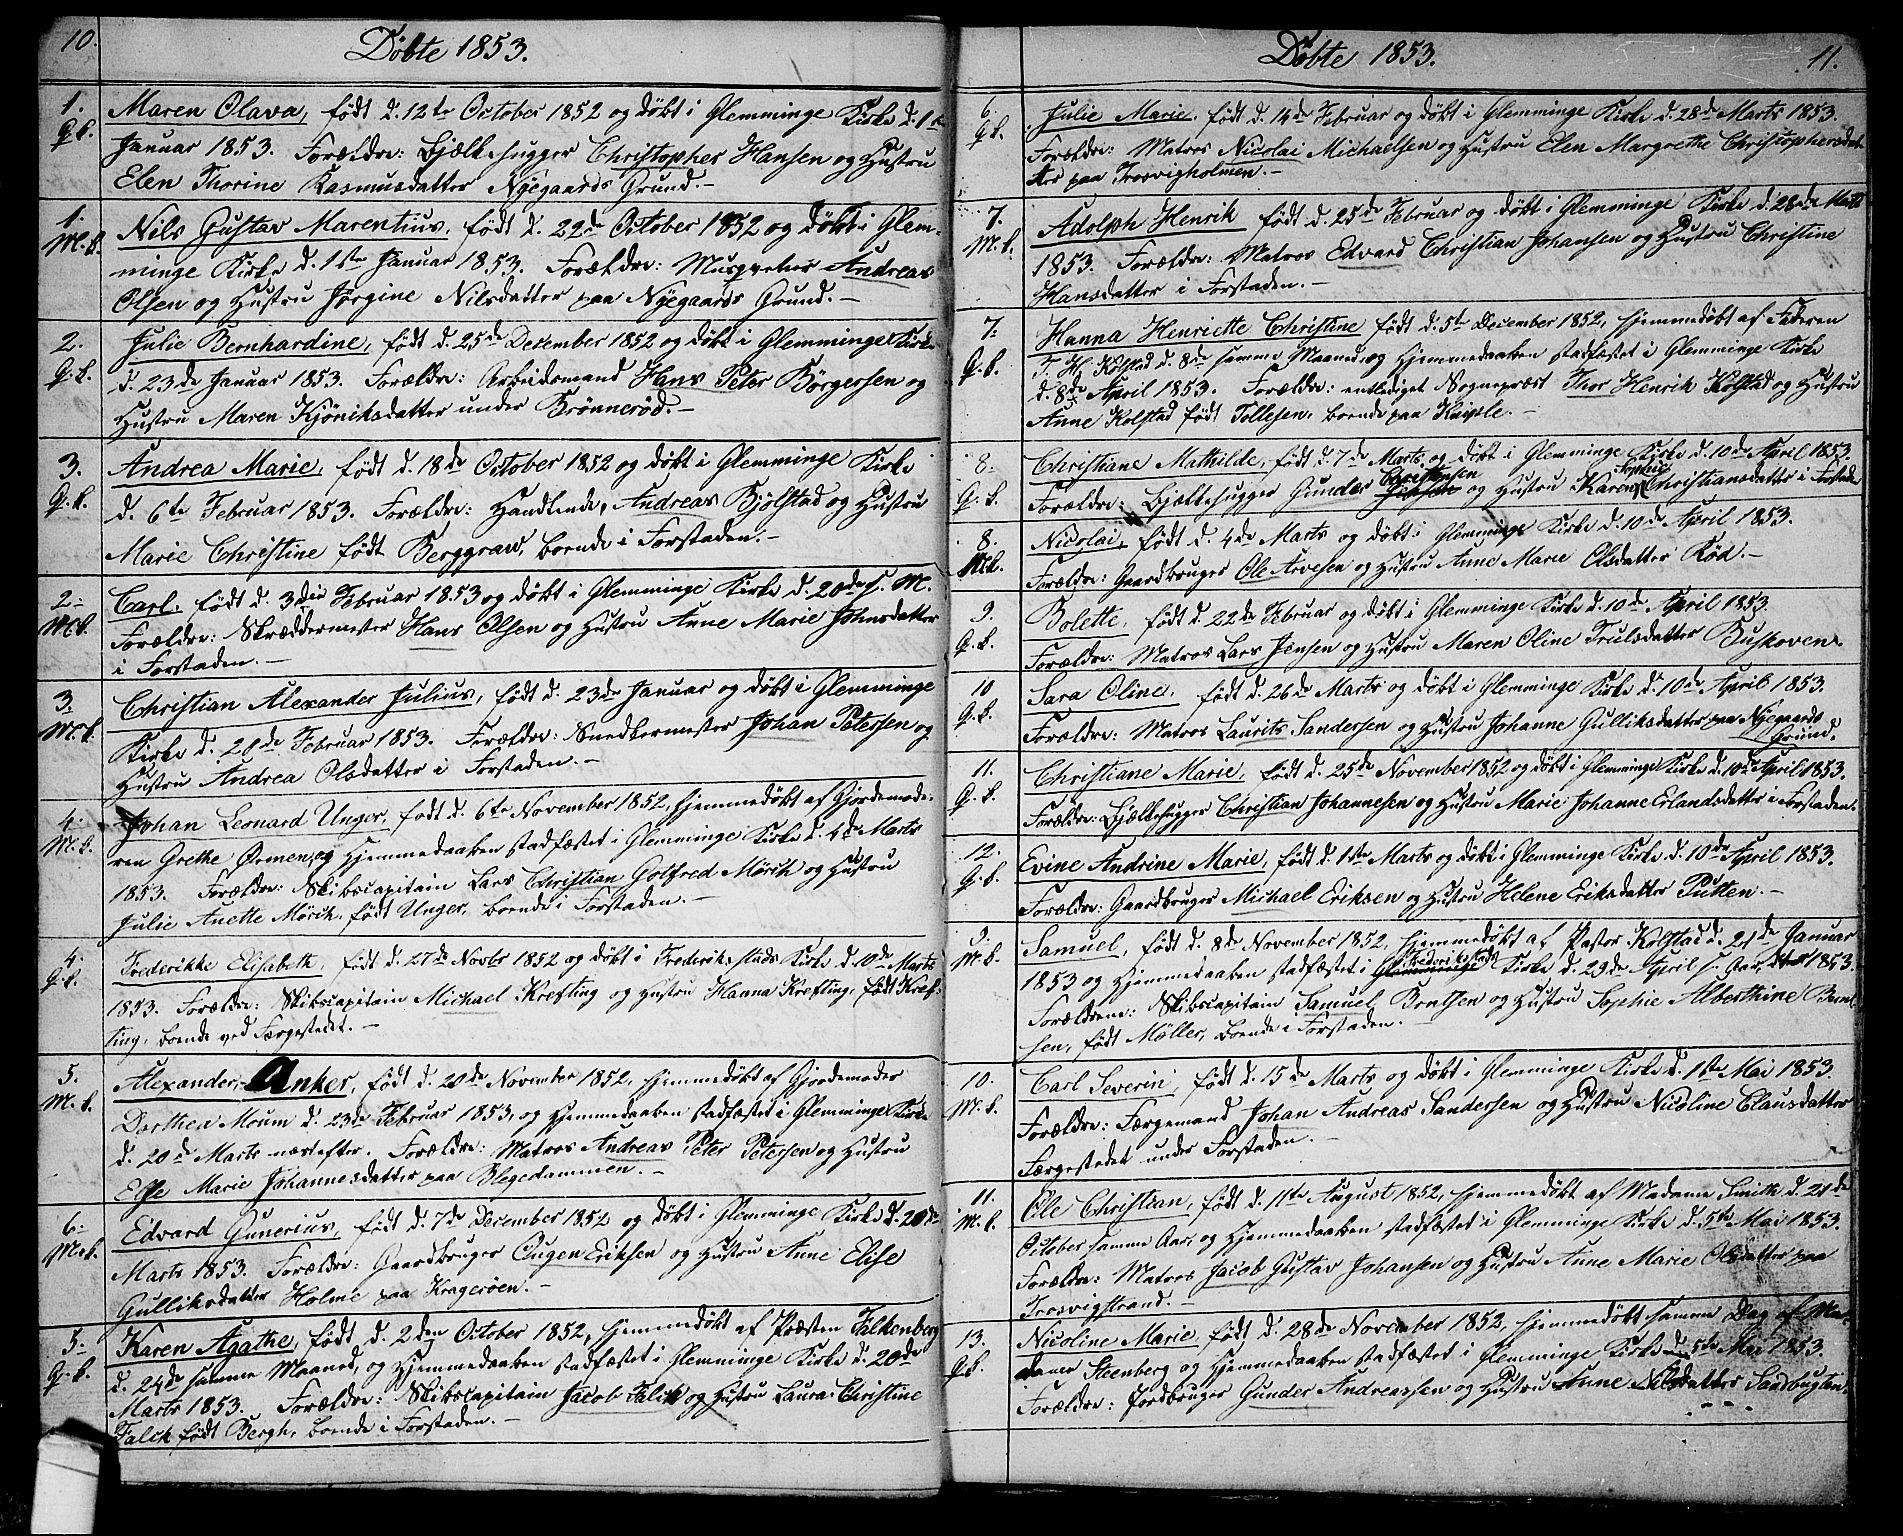 10.
Döbte 1853.
1. Maren Olava, født d. 12te October 1852 og døbt i Glemminge Kirke d. 1ste
G.b. Januar 1853. Forældre: Bjælkehugger Christopher Hansen og Hustru
Elen Thorine Rasmusdatter Nyegaards Grund.-
1. Nils Gustav Marentius, født d. 22de October 1852 og døbt i Glem-
M.b. minge Kirke d. 1ste Januar 1853. Forældre: Andreas
Olsen og Hustru Jørgine Nilsdatter paa Nyegaards Grund.-
2. Julie Bernhardine, født d. 25de December 1852 og døbt i Glemminge Kirke
G.b. d. 23de Januar 1853. Forældre: Arbeidsmand Hans Peter Börgersen og
Hustru Maren Kjöniksdatter under Brönneröd.-
3. Andrea Marie, født d. 18de October 1852 og døbt i Glemminge Kirke
G.b. d. 6te Februar 1853. Forældre: Handlende, Andreas Bjölstad og Hustru
Marie Christine født Berggraw, boende i Forstaden.-
2. Carl, født d. 3die Februar 1853 og døbt i Glemminge Kirke d. 20de s. M.
M.b. Forældre: Skræddermester Hans Olsen og Hustru Anne Marie Johnsdatter
i Forstaden.-
3. Christian Alexander Julius, født d. 23de Januar og døbt i Glemminge
M.b. Kirke d. 20de Februar 1853. Forældre: Snedkermester Johan Petersen og
Hustru Andrea Olsdatter i Forstaden.-
4. Johan Leonard Unger, født d. 6te November 1852, hjemmedøbt af Gjordemode-
M.b. ren Grethe Ormen, og Hjemmedaaben stadfæstet i Glemminge Kirke d. 4de Marts
1853. Forældre: Skibscapitain Lars Christian Gotfred Mörch og Hustru
Julie Anette Mörch, født Unger, boende i Forstaden.-
4. Frederikke Elisabeth, født d. 27de Novbr 1852 og døbt i Frederikstads Kirke d. 10de Marts
G.b. 1853. Forældre: Skibscapitain Michael Krefting og Hustru Hanna Krefting, født Kref-
ting, boende ved Færgestedet.-
5. Alexander Anker, født d. 20de November 1852, hjemmedøbt af Gjordemoder
M.b. Dorthea Moum d. 23de Februar 1853, og Hjemmedaaben stadfæstet i Glemminge Kirke
d. 20de Marts næstefter. Forældre: Matros Andreas Peter Petersen og Hustru
Else Marie Johannesdatter paa Blegedammen.-
6. Edvard Gunerius, født d. 7de December 1852 og døbt i Glemminge Kirke d. 20de
M.b. Marts 1853. Forældre: Gaardbruger Eugen Eriksen og Hustru Anne Elise
Gulliksdatter Holme paa Kragerøen.-
5. Karen Agathe, født d. 2den October 1852, hjemmedøbt af Præsten Falkenberg
G.b. d. 24de samme Maaned, og Hjemmedaaben stadfæstet i Glemminge Kirke d. 20de
Marts 1853. Forældre: Skibscapitain Jacob Falck og Hustru Laura Christine
Falck født Bergh, boende i Forstaden.-
Döbte 1853.
11.
6. Julie Marie, født d. 14de Februar og døbt i Glemminge Kirke d. 28de Marts 1853.
G.b. Forældre: Matros Nicolai Michaelsen og Hustru Elen Margrethe Christophersdat-
ter paa Trosvigholmen.-
7. Adolph Henrik født d. 25de Februar og døbt i Glemminge Kirke d. 28de Marts
M.b. 1853. Forældre: Matros Edvard Christian Johansen og Hustru Christine
Hansdatter i Forstaden.-
7. Hanna Henriette Christine født d. 5te December 1852, hjemmedøbt af Faderen
G.b. T. H. Kolstad d. 8de samme Maaned, og Hjemmedaaben stadfæstet i Glemminge Kirke
d. 8de April 1853. Forældre: entlediget Sognepræst Thor Henrik Kolstad og Hustru
Anne Kolstad født Tollefsen, boende paa Knipsle.-
8. Christiane Mathilde, født d. 7de Marts og døbt i Glemminge Kirke d. 10de April 1853.
G.b. Forældre: Bjælkehugger Gunder Christensen og Hustru Karen Sophie Christiansdatter i Forstaden
8. Nicolai, født d. 4de Marts og døbt i Glemminge Kirke d. 10de April 1853.
M.b. Forældre: Gaardbruger Ole Arvesen og Hustru Anne Marie Olsdatter Röd.-
9. Bolette, født d. 22de Februar og døbt i Glemminge Kirke d. 10de April 1853.
G.b. Forældre: Matros Lars Jensen og Hustru Maren Oline Trulsdatter Buskoven.
10 Sara Oline, født d. 26de Marts og døbt i Glemminge Kirke d. 10de April 1853.
G.b. Forældre: Matros Laurits Sandersen og Hustru Johanne Gulliksdatter paa Nyegaards
Grund.
11. Christiane Marie, født d. 25de November 1852 og døbt i Glemminge Kirke d. 10de April 1853.
G.b. Forældre: Bjælkehugger Christian Johannesen og Hustru Marie Johanne Erlandsdatter i Forstaden.
12. Evine Andrine Marie, født d. 1ste Marts og døbt i Glemminge Kirke d. 10de April 1853.
G.b. Forældre: Gaardbruger Michael Eriksen og Hustru Helene Eriksdatter Putten.-
9. Samuel, født d. 8de November 1852, hjemmedøbt af Pastor Kolstad d. 21de Januar
M.b. 1853 og Hjemmedaaben stadfæstet i Glemminge Frederikstads Kirke d. 29de April s. Aar, 1853.
Forældrene: Skibscapitain Samuel Berntsen og Hustru Sophie Alberthine Bernt-
sen, født Möller, boende i Forstaden.-
10. Carl Severin, født d. 15de Marts og døbt i Glemminge Kirke d. 1ste Mai 1853.
M.b. Forældre: Færgemand Johan Andreas Sandersen og Hustru Nicoline Clausdatter
Færgestedet under Forstaden.-
11. Ole Christian, født d. 11te August 1852, hjemmedøbt af Madame Smith d. 21de
M.b. October samme Aar, og Hjemmedaaben stadfæstet i Glemminge Kirke d. 5te Mai 1853.
Forældre: Matros Jacob Gustav Johansen og Hustru Anne Marie Olsdatter paa
Trosvigstrand.-
13. Nicoline Marie, født d. 28de November 1852, hjemmedøbt samme Dag af Ma-
G.b. dame Steenberg og Hjemmedaaben stadfæstet i Glemminge Kirke d. 5te Mai 1853.
Forældre: Jordbruger Gunder Andreassen og Hustru Anne Nilsdatter Sandbugten.